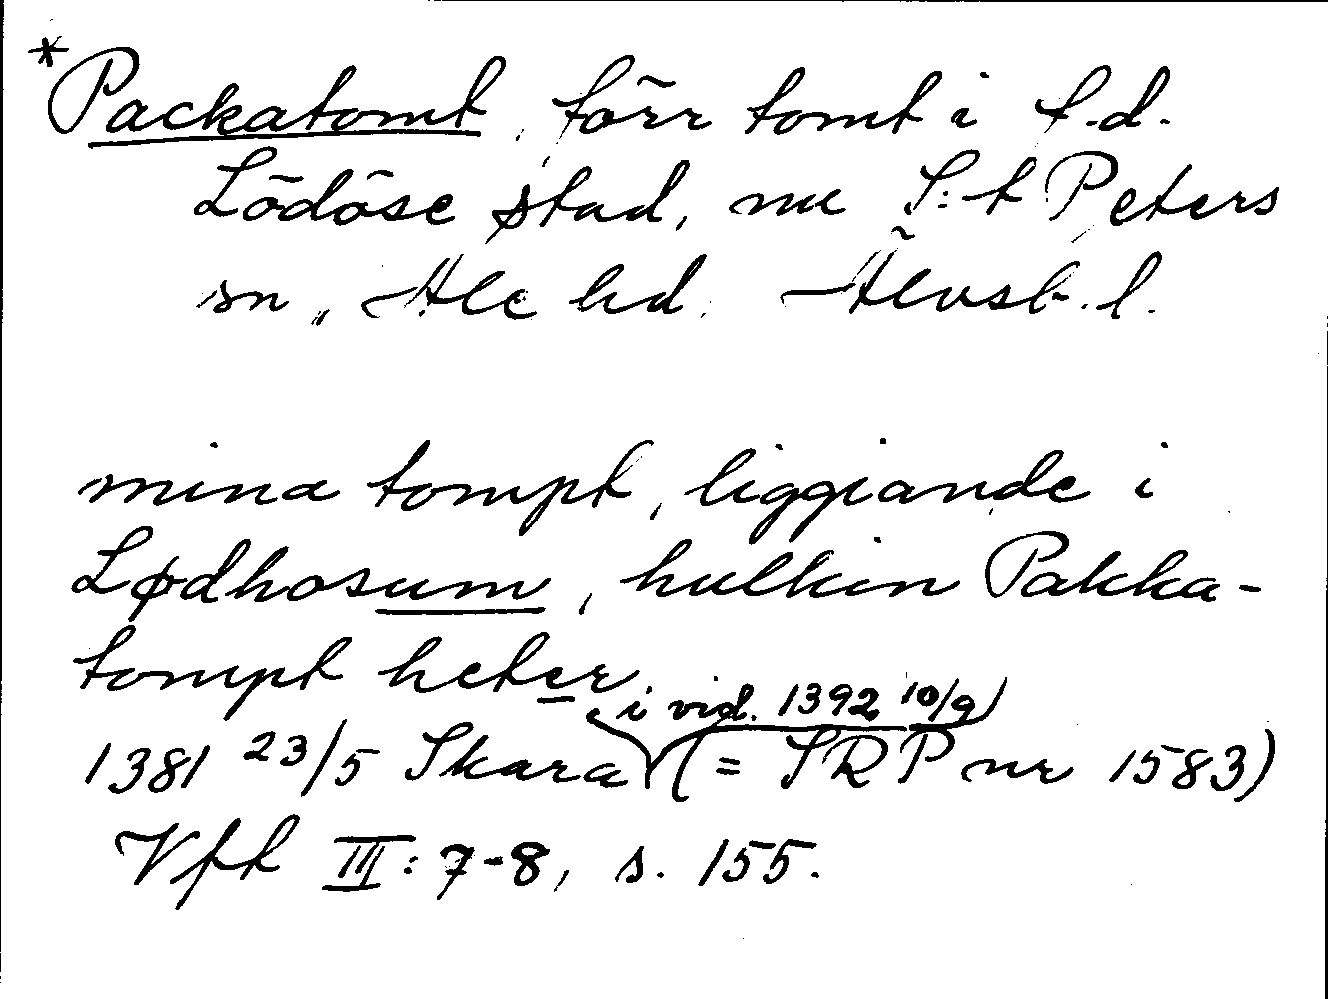 *Packatomt, förr tomt i f.d.
Lödöse stad, nu S:t Peters
sn, Ale hd. Älvsb. l.
mina tompt, liggiande i
Lødhosum, hulkin Pakka-
tompt heter.
i vid. 1392 10/9)
1381 23/5 Skara (= SRP nr 1583)
Vft III: 7-8, s. 155.